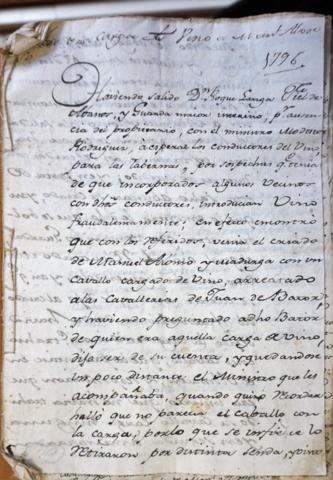 Carga de Vino a Man.l Alonso
1796.
Haviendo salido Dn. Roque Langa Fiel de
Abanos, y Guarda maior interino, p. ausen-
cia del propietario, con el ministro Modesto
Rodriguez, a esperar los conductores del Vino
para las tabernas, por sospechas q. tenia
de que incorporados algunos vecinos
con dhos conductores, introducian Vino
fraudulentamente, en efecto encontro
que con los referidos, venia el criado
de Manuel Alonso y Madurga con un
Caballo cargado de Vino, arreatado
a las Cavallerias de Juan de Baroz
y haviendo preguntado a dho Baroz
de quien era aquella carga de vino
dijo ser de su cuenta, y quedandose
un poco distante el Ministro que les
acompañaba, quando quiso
hallo que no parecia el Caballo con
la Carga, por lo que se infiere lo
retiraron por distinta senda, y vino